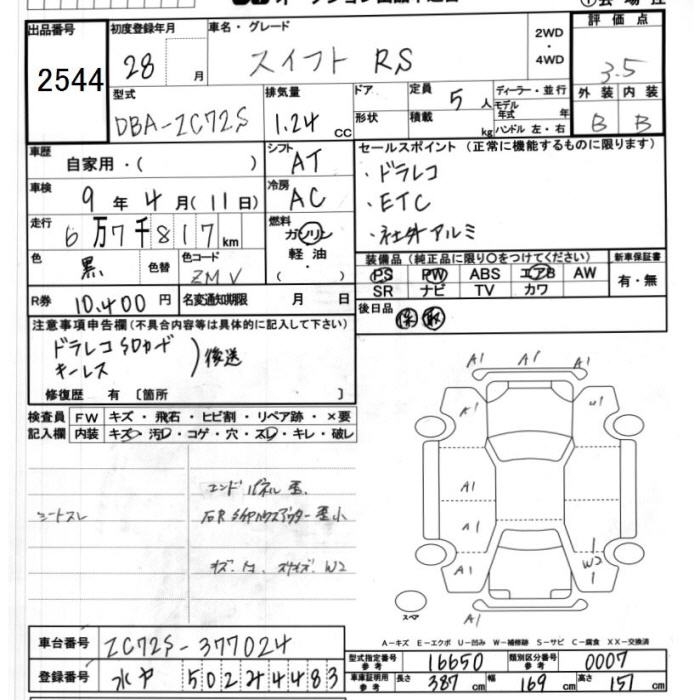 出品番号 初度登録年月 車名・グレード 2WD・4WD 評価点
2544 28 月 スイフト RS 3.5
型式 排気量 ドア 定員 5 人 ディーラー・並行 外装 内装
DBA-ZC72S 1.24 cc 形状 積載 kg モデル年式 年 ハンドル 左・右 B B
車歴 自家用・( ) シフト AT セールスポイント (正常に機能するものに限ります)
車検 9 年 4 月 (11日) 冷房 AC ・ドラレコ
・ETC
走行 6万7千817km 燃料 ガソリン 軽油・( ) ・社外アルミ
色 黒 色替 色コード ZMV 装備品 (純正品に限り○をつけてください) 新車保証書
PS PW ABS エアB AW 有・無
SR ナビ TV カワ
R券 10,400 円 名変通知期限 月 日 後日品 保 取
注意事項申告欄 (不具合内容等は具体的に記入して下さい)
ドラレコ SDカード
キーレス ) 後送
修復歴 有 〔箇所 〕
検査員 FW キズ・飛石・ヒビ割・リペア跡・×要
記入欄 内装 キズ・汚レ・コゲ・穴・スレ・キレ・破レ
シートスレ
エンドパネル歪
キズ、凹
W2
A1 A1 A1
A1 U1
A1
A1
A1 W2
A1
スペア
A-キズ E-エクボ U-凹み W-補修跡 S-サビ C-腐食 XX-交換済
車台番号 ZC72S-377024
型式指定番号 参考 16650 類別区分番号 参考 0007
登録番号 水戸 502 み 4483
車庫証明用 参考 長さ 387 cm 幅 169 cm 高さ 151 cm